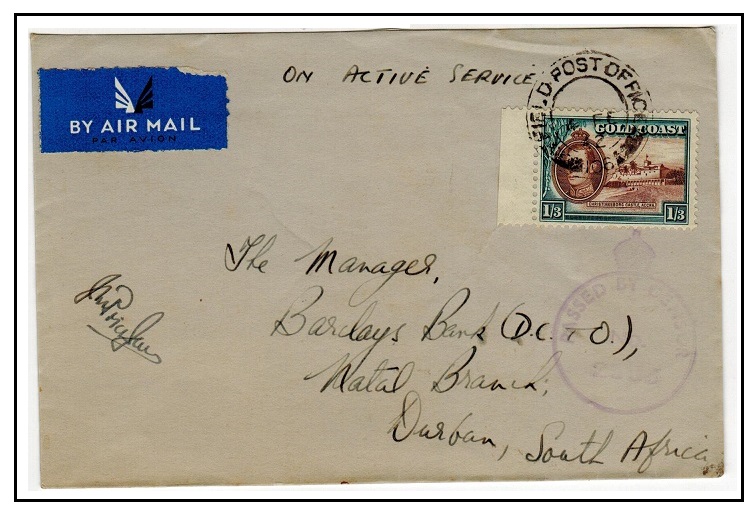 ON ACTIVE SERVICE
FIELD POST OFFICE
BY AIR MAIL
PAR AVION
GOLD COAST
CHRISTIANSBORG CASTLE, ACCRA
1/3 1/3
The Manager,
Barclays Bank (D.C. & O.),
Natal Branch,
Durban, South Africa
PASSED BY CENSOR